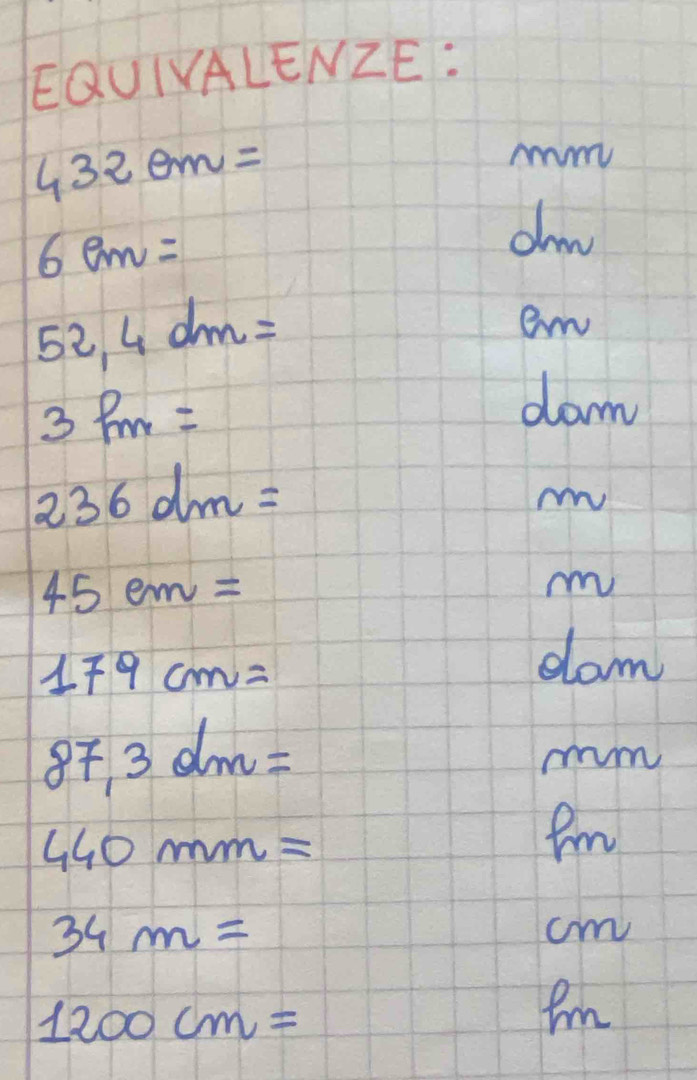 EQUIVALENZE:
432 cm = mm
6 cm = dm
52,4 dm = cm
3 hm = dam
236 dm = m
45 cm = m
179 cm = dam
87,3 dm = mm
440 mm = hm
34 m = cm
1200 cm = hm